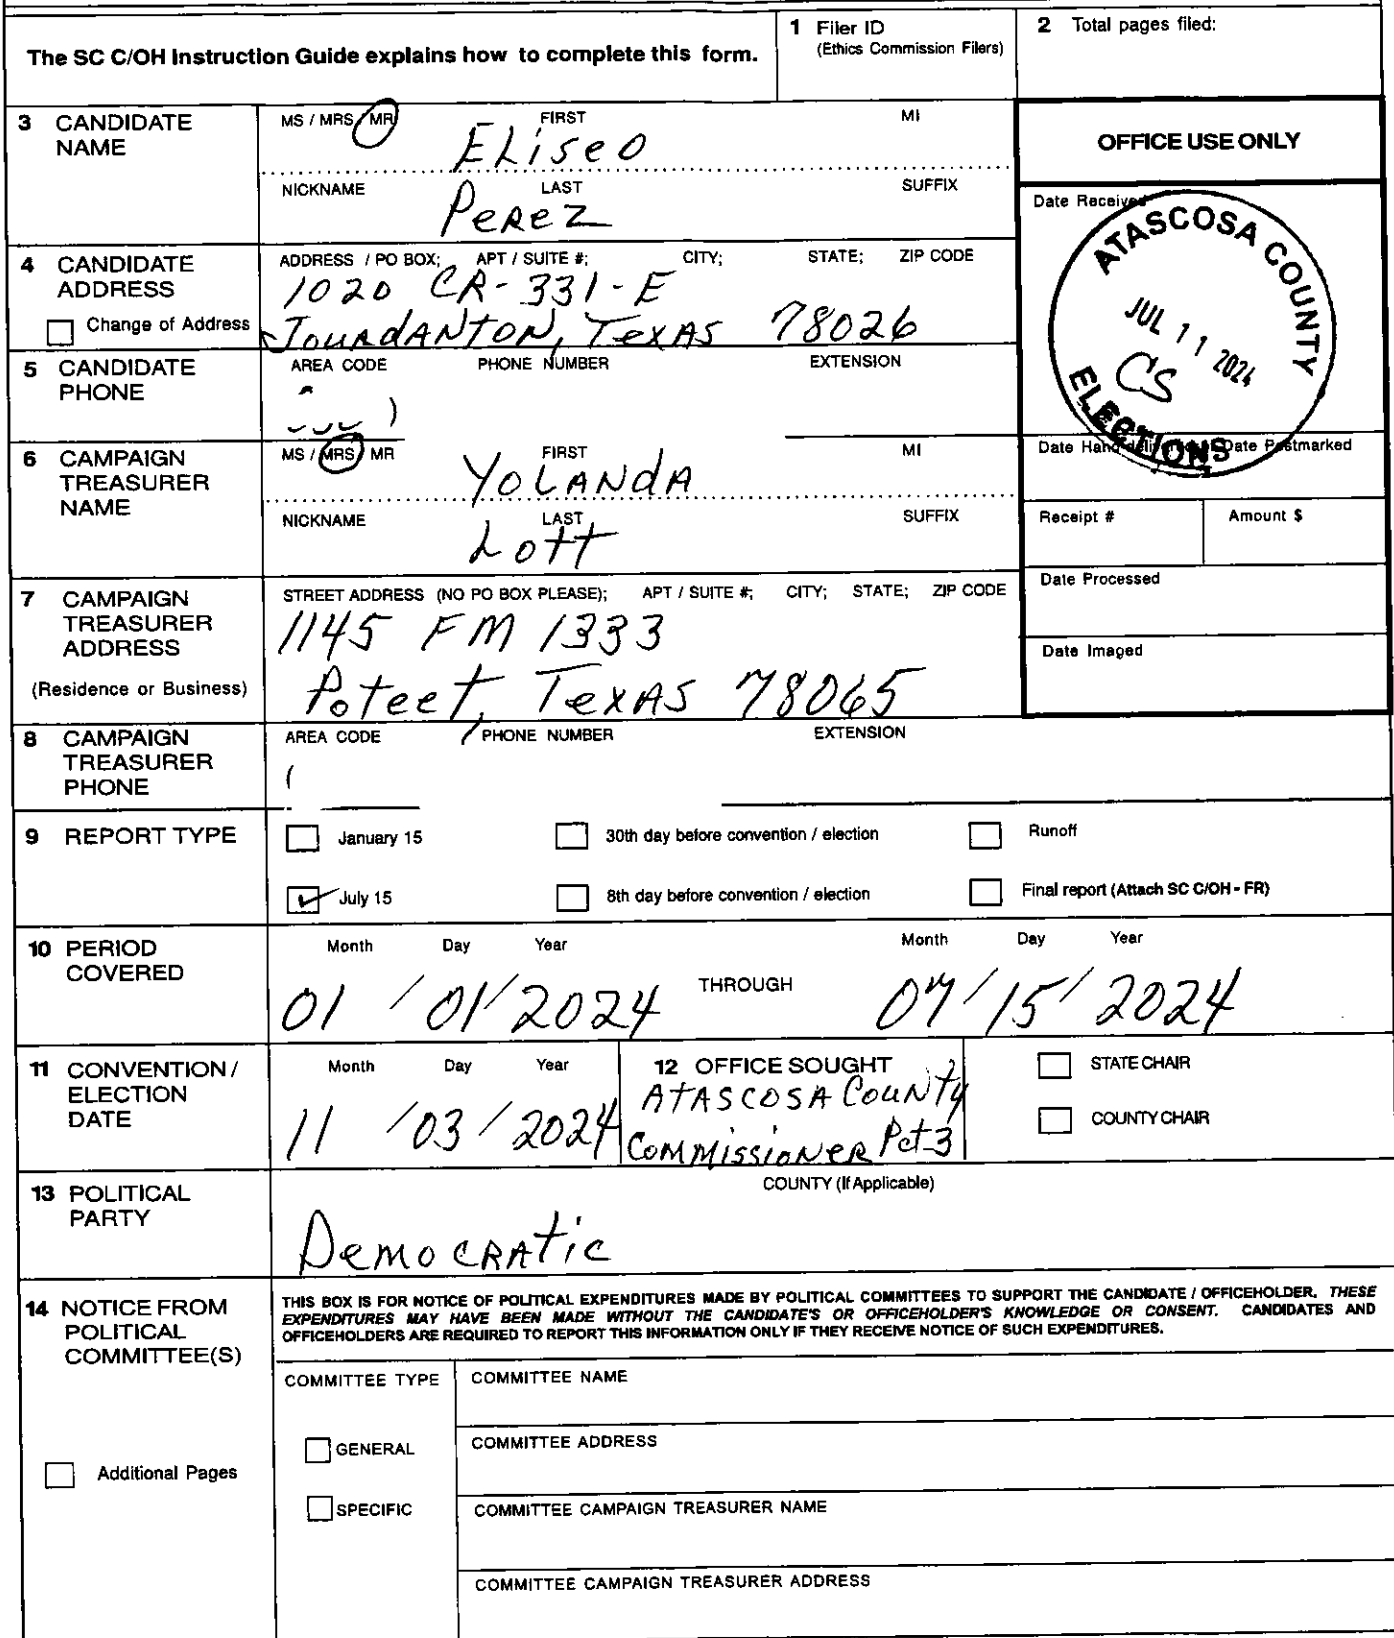 The SC C/OH Instruction Guide explains how to complete this form.
1 Filer ID
(Ethics Commission Filers)
2 Total pages filed:
3 CANDIDATE
NAME
MS / MRS / MR
FIRST
MI
Eliseo
NICKNAME
LAST
SUFFIX
Perez
OFFICE USE ONLY
Date Received
ATASCOSA COUNTY
JUL 11 2024
CS
ELECTIONS
4 CANDIDATE
ADDRESS
Change of Address
ADDRESS / PO BOX; APT / SUITE #; CITY; STATE; ZIP CODE
1020 CR-331-E
JOURDANTON, TEXAS 78026
5 CANDIDATE
PHONE
AREA CODE
PHONE NUMBER
EXTENSION
6 CAMPAIGN
TREASURER
NAME
MS / MRS / MR
FIRST
MI
YOLANDA
NICKNAME
LAST
SUFFIX
Lott
Date Hand-delivered or Date Postmarked
Receipt #
Amount $
Date Processed
Date Imaged
7 CAMPAIGN
TREASURER
ADDRESS
(Residence or Business)
STREET ADDRESS (NO PO BOX PLEASE); APT / SUITE #; CITY; STATE; ZIP CODE
1145 FM 1333
Poteet, Texas 78065
8 CAMPAIGN
TREASURER
PHONE
AREA CODE
PHONE NUMBER
EXTENSION
9 REPORT TYPE
January 15
30th day before convention / election
Runoff
July 15
8th day before convention / election
Final report (Attach SC C/OH - FR)
10 PERIOD
COVERED
Month Day Year
01 / 01 / 2024
THROUGH
Month Day Year
07 / 15 / 2024
11 CONVENTION /
ELECTION
DATE
Month Day Year
11 / 03 / 2024
12 OFFICE SOUGHT
ATASCOSA COUNTY
COMMISSIONER Pct-3
STATE CHAIR
COUNTY CHAIR
13 POLITICAL
PARTY
COUNTY (If Applicable)
Democratic
14 NOTICE FROM
POLITICAL
COMMITTEE(S)
Additional Pages
THIS BOX IS FOR NOTICE OF POLITICAL EXPENDITURES MADE BY POLITICAL COMMITTEES TO SUPPORT THE CANDIDATE / OFFICEHOLDER. THESE
EXPENDITURES MAY HAVE BEEN MADE WITHOUT THE CANDIDATE'S OR OFFICEHOLDER'S KNOWLEDGE OR CONSENT. CANDIDATES AND
OFFICEHOLDERS ARE REQUIRED TO REPORT THIS INFORMATION ONLY IF THEY RECEIVE NOTICE OF SUCH EXPENDITURES.
COMMITTEE TYPE
GENERAL
SPECIFIC
COMMITTEE NAME
COMMITTEE ADDRESS
COMMITTEE CAMPAIGN TREASURER NAME
COMMITTEE CAMPAIGN TREASURER ADDRESS